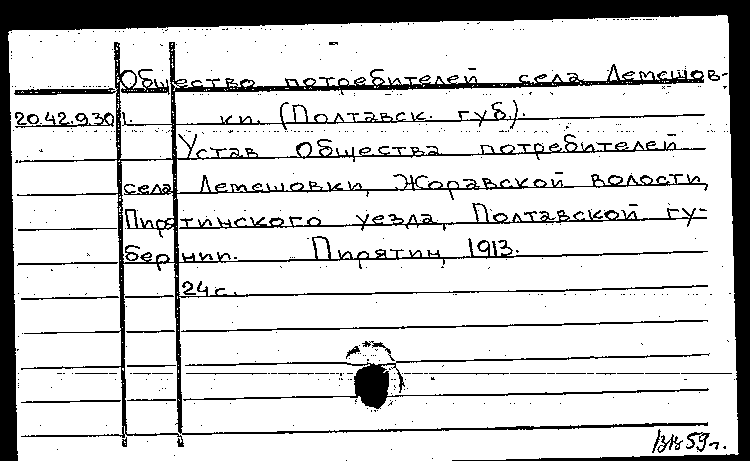 Общество потребителей села Лемешов-
20.42.9.301. ки. (Полтавск. губ.).
Устав Общества потребителей
села Лемешовки, Жоравской волости,
Пирятинского уезда, Полтавской гу-
бернии. Пирятин, 1913.
24 с.
59 г.